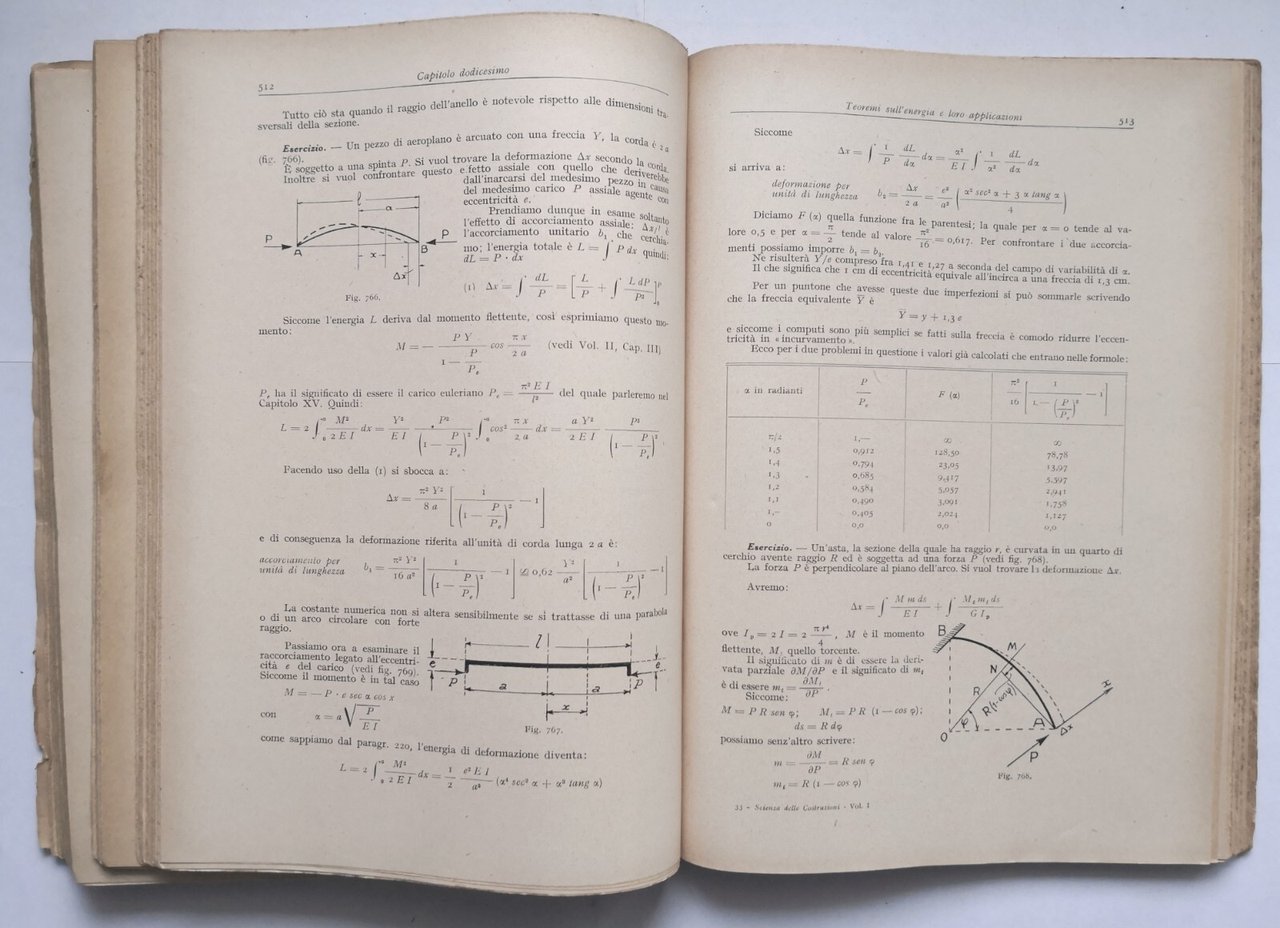 512
Capitolo dodicesimo
Tutto ciò sta quando il raggio dell'anello è notevole rispetto alle dimensioni tra-
sversali della sezione.
Esercizio. — Un pezzo di aeroplano è arcuato con una freccia Y, la corda è 2 a
(fig. 766).
È soggetto a una spinta P. Si vuol trovare la deformazione Δx secondo la corda.
Inoltre si vuol confrontare questo effetto assiale con quello che deriverebbe
dall'inarcarsi del medesimo pezzo in causa
del medesimo carico P assiale agente con
eccentricità e.
Prendiamo dunque in esame soltanto
l'effetto di accorciamento assiale; Δx/l è
l'accorciamento unitario b₁ che cerchia-
mo; l'energia totale è L = ∫ P dx quindi:
dL = P · dx
l
a
P
A
x
B
P
Δx
Fig. 766.
(1) Δx = ∫ dL/P = [ L/P + ∫ L dP/P² ]ᴾ₀
Siccome l'energia L deriva dal momento flettente, così esprimiamo questo mo-
mento:
M = — P Y / (1 — P/Pₑ) cos π x / 2 a (vedi Vol. II, Cap. III)
Pₑ ha il significato di essere il carico euleriano Pₑ = π² E I / l² del quale parleremo nel
Capitolo XV. Quindi:
L = 2 ∫₀ᵃ M² / 2 E I dx = Y² / E I P² / (1 — P/Pₑ)² ∫₀ᵃ cos² π x / 2 a dx = a Y² / 2 E I P² / (1 — P/Pₑ)²
Facendo uso della (1) si sbocca a:
Δx = π² Y² / 8 a [ 1 / (1 — P/Pₑ)² — 1 ]
e di conseguenza la deformazione riferita all'unità di corda lunga 2 a è:
accorciamento per
unità di lunghezza b₁ = π² Y² / 16 a² [ 1 / (1 — P/Pₑ)² — 1 ] ≅ 0,62 Y² / a² [ 1 / (1 — P/Pₑ)² — 1 ]
La costante numerica non si altera sensibilmente se si trattasse di una parabola
o di un arco circolare con forte
raggio.
Passiamo ora a esaminare il
raccorciamento legato all'eccentri-
cità e del carico (vedi fig. 769).
Siccome il momento è in tal caso
M = — P · e sec α cos x
con α = a √ P / E I
l
e
e
P
P
a
a
x
Fig. 767.
come sappiamo dal paragr. 220, l'energia di deformazione diventa:
L = 2 ∫₀ᵃ M² / 2 E I dx = 1/2 e² E I / a³ (α⁴ sec² α + α³ tang α)
Teoremi sull'energia e loro applicazioni
513
Siccome
Δx = ∫ 1/P dL/dα dα = a² / E I ∫ 1/α² dL/dα dα
si arriva a:
deformazione per
unità di lunghezza b₂ = Δx / 2 a = e² / a² ( α² sec² α + 3 α tang α / 4 )
Diciamo F (α) quella funzione fra le parentesi; la quale per α = 0 tende al va-
lore 0,5 e per α = π/2 tende al valore π²/16 = 0,617. Per confrontare i due accorcia-
menti possiamo imporre b₁ = b₂.
Ne risulterà Y/e compreso fra 1,41 e 1,27 a seconda del campo di variabilità di α.
Il che significa che 1 cm di eccentricità equivale all'incirca a una freccia di 1,3 cm.
Per un puntone che avesse queste due imperfezioni si può sommarle scrivendo
che la freccia equivalente Y̅ è
Y̅ = y + 1,3 e
e siccome i computi sono più semplici se fatti sulla freccia è comodo ridurre l'eccen-
tricità in « incurvamento ».
Ecco per i due problemi in questione i valori già calcolati che entrano nelle formole:
α in radianti P/Pₑ F (α) π²/16 [ 1 / (1 — P/Pₑ)² — 1 ]
π/2 1,— ∞ ∞
1,5 0,912 128,50 78,78
1,4 0,794 23,05 13,97
1,3 0,685 9,417 5,597
1,2 0,584 5,057 2,941
1,1 0,490 3,091 1,758
1,– 0,405 2,024 1,127
0 0,0 0,0 0,0
Esercizio. — Un'asta, la sezione della quale ha raggio r, è curvata in un quarto di
cerchio avente raggio R ed è soggetta ad una forza P (vedi fig. 768).
La forza P è perpendicolare al piano dell'arco. Si vuol trovare la deformazione Δx.
Avremo:
Δx = ∫ M m ds / E I + ∫ Mₜ mₜ ds / G Iₚ
ove Iₚ = 2 I = 2 π r⁴ / 4 , M è il momento
flettente, Mₜ quello torcente.
Il significato di m è di essere la deri-
vata parziale ∂M/∂P e il significato di mₜ
è di essere mₜ = ∂Mₜ / ∂P .
Siccome:
M = P R sen φ; Mₜ = P R (1 — cos φ);
ds = R dφ
possiamo senz'altro scrivere:
m = ∂M / ∂P = R sen φ
mₜ = R (1 — cos φ)
B
M
N
R
R(1-cosφ)
φ
O
A
Δx
x
P
Fig. 768.
33 - Scienza delle Costruzioni - Vol. I